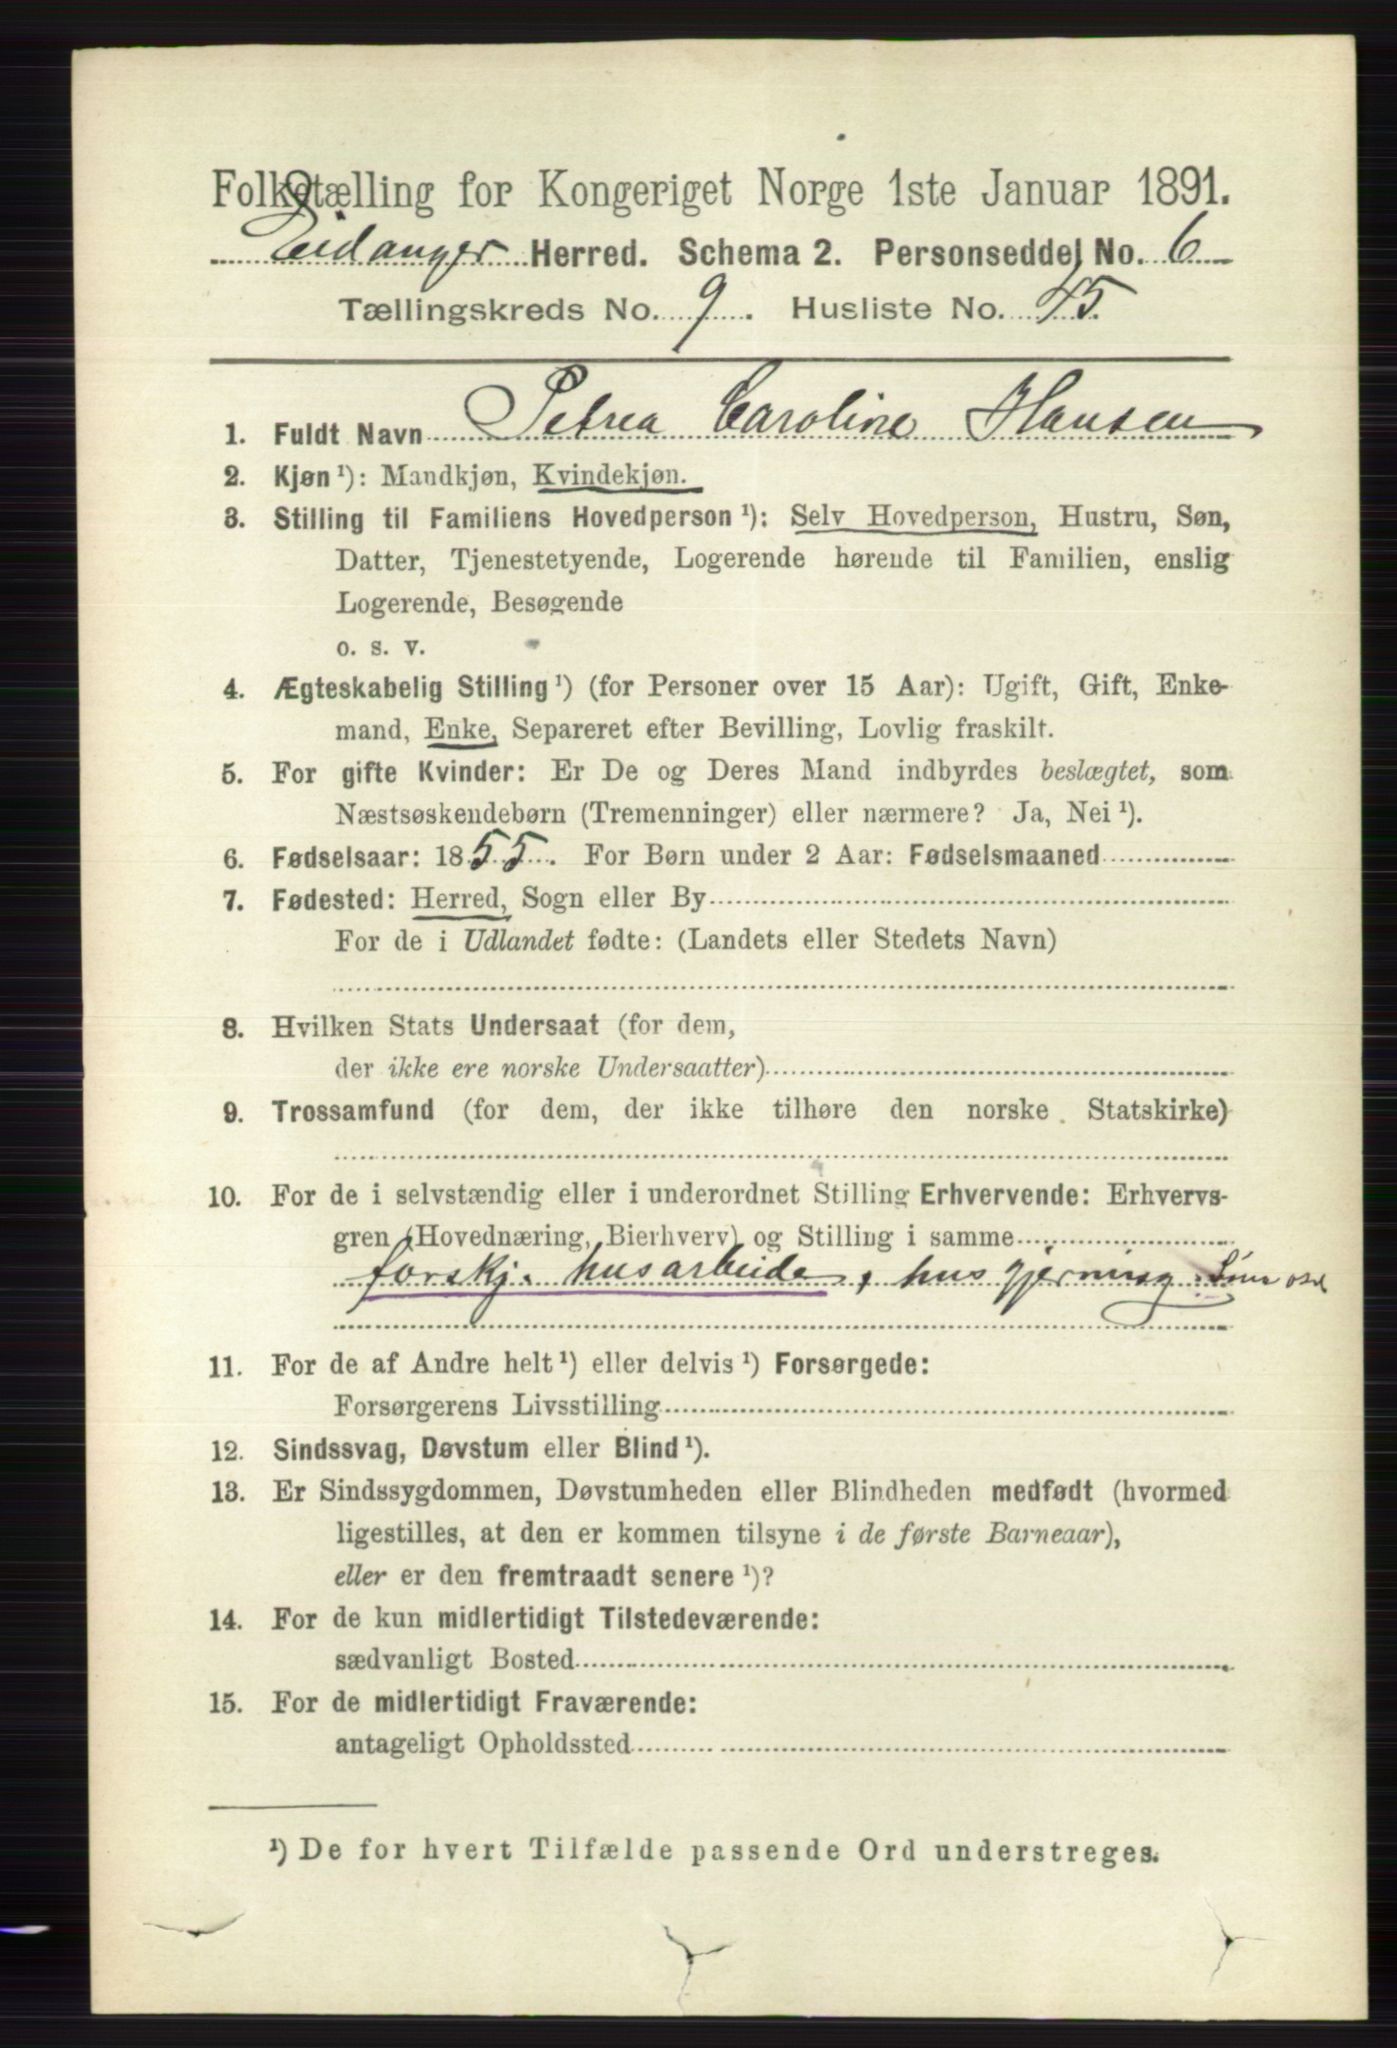 Folketælling for Kongeriget Norge 1ste Januar 1891.
Eidanger Herred. Schema 2. Personseddel No. 6
Tællingskreds No. 9. Husliste No. 45.
1. Fuldt Navn Petrea Caroline Hansen
2. Kjøn ¹): Mandkjøn, Kvindekjøn.
3. Stilling til Familiens Hovedperson ¹): Selv Hovedperson, Hustru, Søn,
Datter, Tjenestetyende, Logerende hørende til Familien, enslig
Logerende, Besøgende
o. s. v.
4. Ægteskabelig Stilling ¹) (for Personer over 15 Aar): Ugift, Gift, Enke-
mand, Enke, Separeret efter Bevilling, Lovlig fraskilt.
5. For gifte Kvinder: Er De og Deres Mand indbyrdes beslægtet, som
Næstsøskendebørn (Tremenninger) eller nærmere? Ja, Nei ¹).
6. Fødselsaar: 1855. For Børn under 2 Aar: Fødselsmaaned
7. Fødested: Herred, Sogn eller By
For de i Udlandet fødte: (Landets eller Stedets Navn)
8. Hvilken Stats Undersaat (for dem,
der ikke ere norske Undersaatter)
9. Trossamfund (for dem, der ikke tilhøre den norske Statskirke)
10. For de i selvstændig eller i underordnet Stilling Erhvervende: Erhvervs-
gren (Hovednæring, Bierhverv) og Stilling i samme
forskj. husarbeide, husgjerning
11. For de af Andre helt ¹) eller delvis ¹) Forsørgede:
Forsørgerens Livsstilling
12. Sindssvag, Døvstum eller Blind ¹).
13. Er Sindssygdommen, Døvstumheden eller Blindheden medfødt (hvormed
ligestilles, at den er kommen tilsyne i de første Barneaar),
eller er den fremtraadt senere ¹)?
14. For de kun midlertidigt Tilstedeværende:
sædvanligt Bosted
15. For de midlertidigt Fraværende:
antageligt Opholdssted
¹) De for hvert Tilfælde passende Ord understreges.